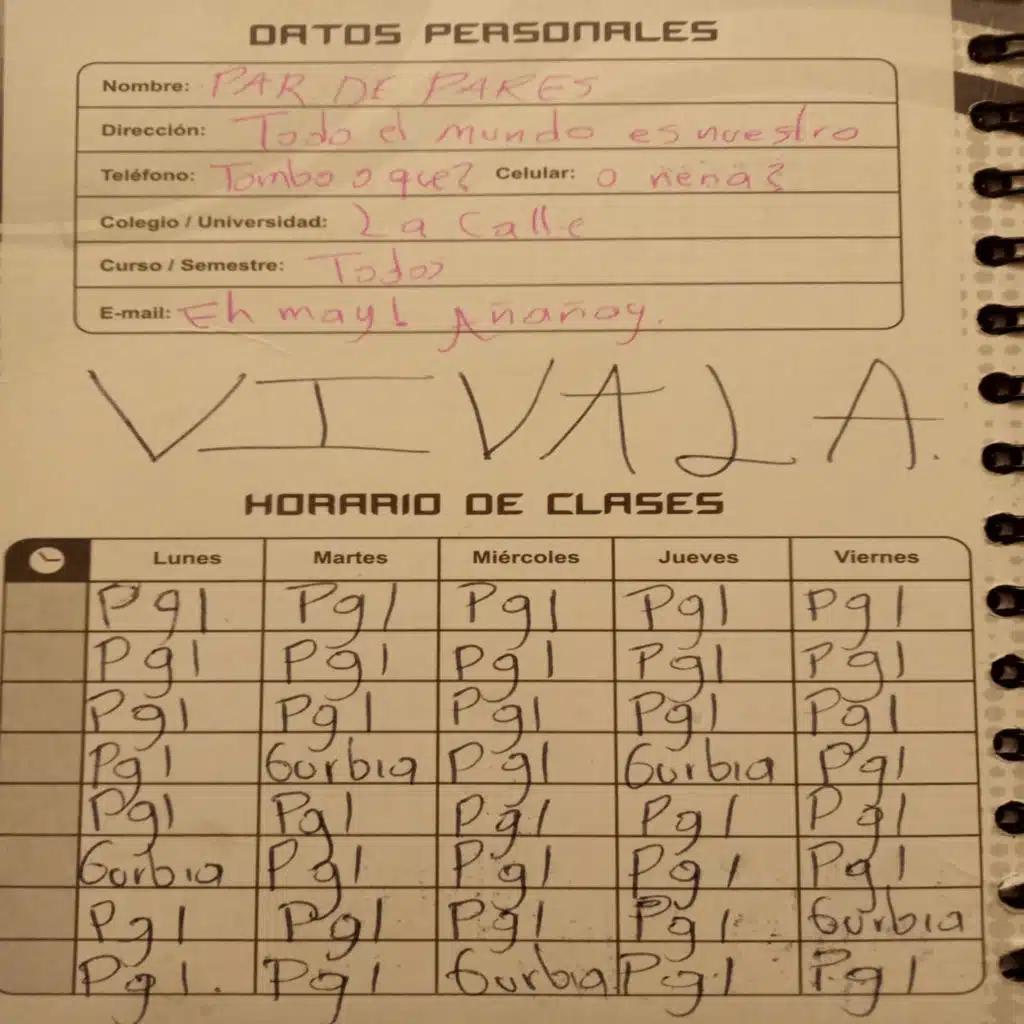 DATOS PERSONALES
Nombre: PAR DE PARES
Dirección: Todo el mundo es nuestro
Teléfono: Tombo o que? Celular: o nena?
Colegio / Universidad: La Calle
Curso / Semestre: Todos
E-mail: Eh may! Añañay.
VIVALA.
HORARIO DE CLASES
Lunes Martes Miércoles Jueves Viernes
Pgl Pgl Pgl Pgl Pgl
Pgl Pgl Pgl Pgl Pgl
Pgl Pgl Pgl Pgl Pgl
Pgl Gurbia Pgl Gurbia Pgl
Pgl Pgl Pgl Pgl Pgl
Gurbia Pgl Pgl Pgl Pgl
Pgl Pgl Pgl Pgl. Gurbia
Pgl. Pgl Gurbia Pgl Pgl